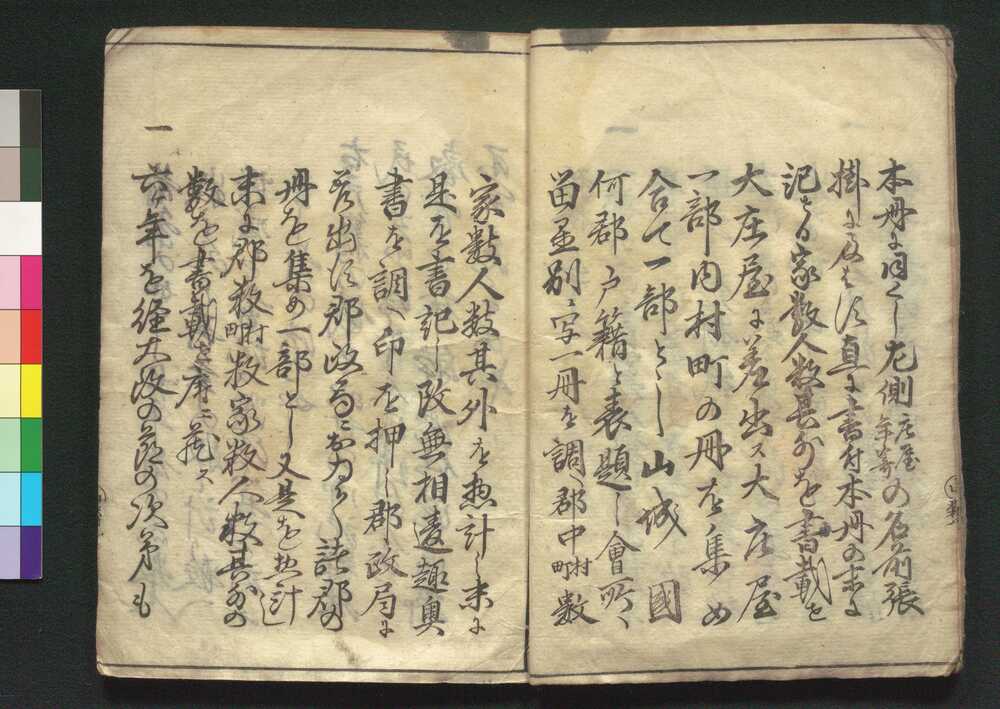 本冊に同しく左側庄屋年寄の名前張
掛に及はす直に書付本冊の末に
記せる家数人数其外を書載せ
大庄屋に差出ス大庄屋
一部内村町の冊を集め
合て一部とし山城國
何郡戸籍と表題し會所ニ
留置別ニ写一冊を調郡中村町数
家数人数其外を惣計し末に
是を書記し改無相違趣奥
書を調ヘ印を押し郡政局に
差出す郡政局におゐて諸郡の
冊を集め一部とし又是を惣計し
末に郡数村町数家数人数其外の
数を書載せ府ニ蔵ス
一
六ケ年を経大改の節の次第も